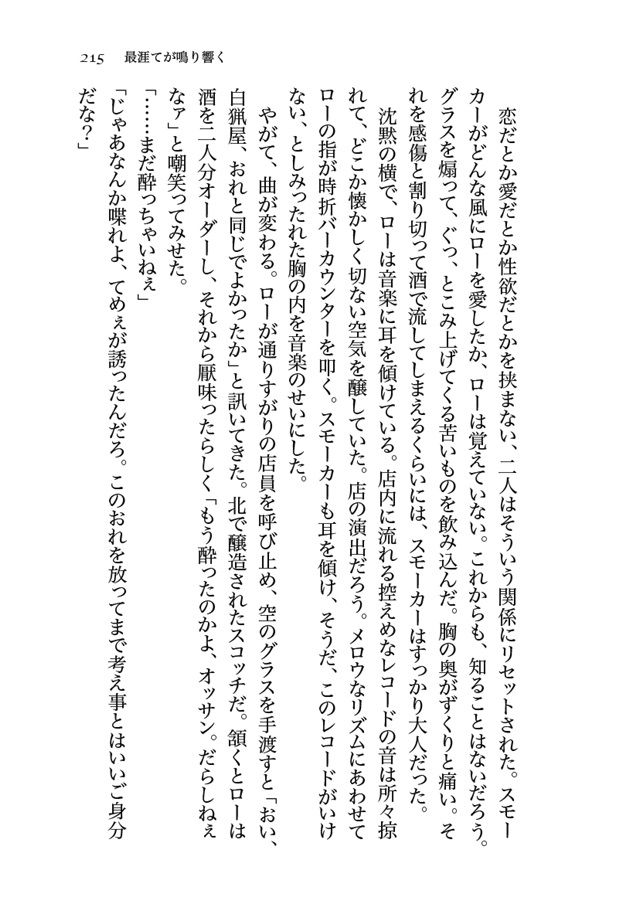 215　最涯てが鳴り響く
　恋だとか愛だとか性欲だとかを挟まない、二人はそういう関係にリセットされた。スモー
カーがどんな風にローを愛したか、ローは覚えていない。これからも、知ることはないだろう。
グラスを煽って、ぐっ、とこみ上げてくる苦いものを飲み込んだ。胸の奥がずくりと痛い。そ
れを感傷と割り切って酒で流してしまえるくらいには、スモーカーはすっかり大人だった。
　沈黙の横で、ローは音楽に耳を傾けている。店内に流れる控えめなレコードの音は所々掠
れて、どこか懐かしく切ない空気を醸していた。店の演出だろう。メロウなリズムにあわせて
ローの指が時折バーカウンターを叩く。スモーカーも耳を傾け、そうだ、このレコードがいけ
ない、としみったれた胸の内を音楽のせいにした。
　やがて、曲が変わる。ローが通りすがりの店員を呼び止め、空のグラスを手渡すと「おい、
白猟屋、おれと同じでよかったか」と訊いてきた。北で醸造されたスコッチだ。頷くとローは
酒を二人分オーダーし、それから厭味ったらしく「もう酔ったのかよ、オッサン。だらしねぇ
なァ」と嘲笑ってみせた。
「……まだ酔っちゃいねぇ」
「じゃあなんか喋れよ、てめぇが誘ったんだろ。このおれを放ってまで考え事とはいいご身分
だな？」